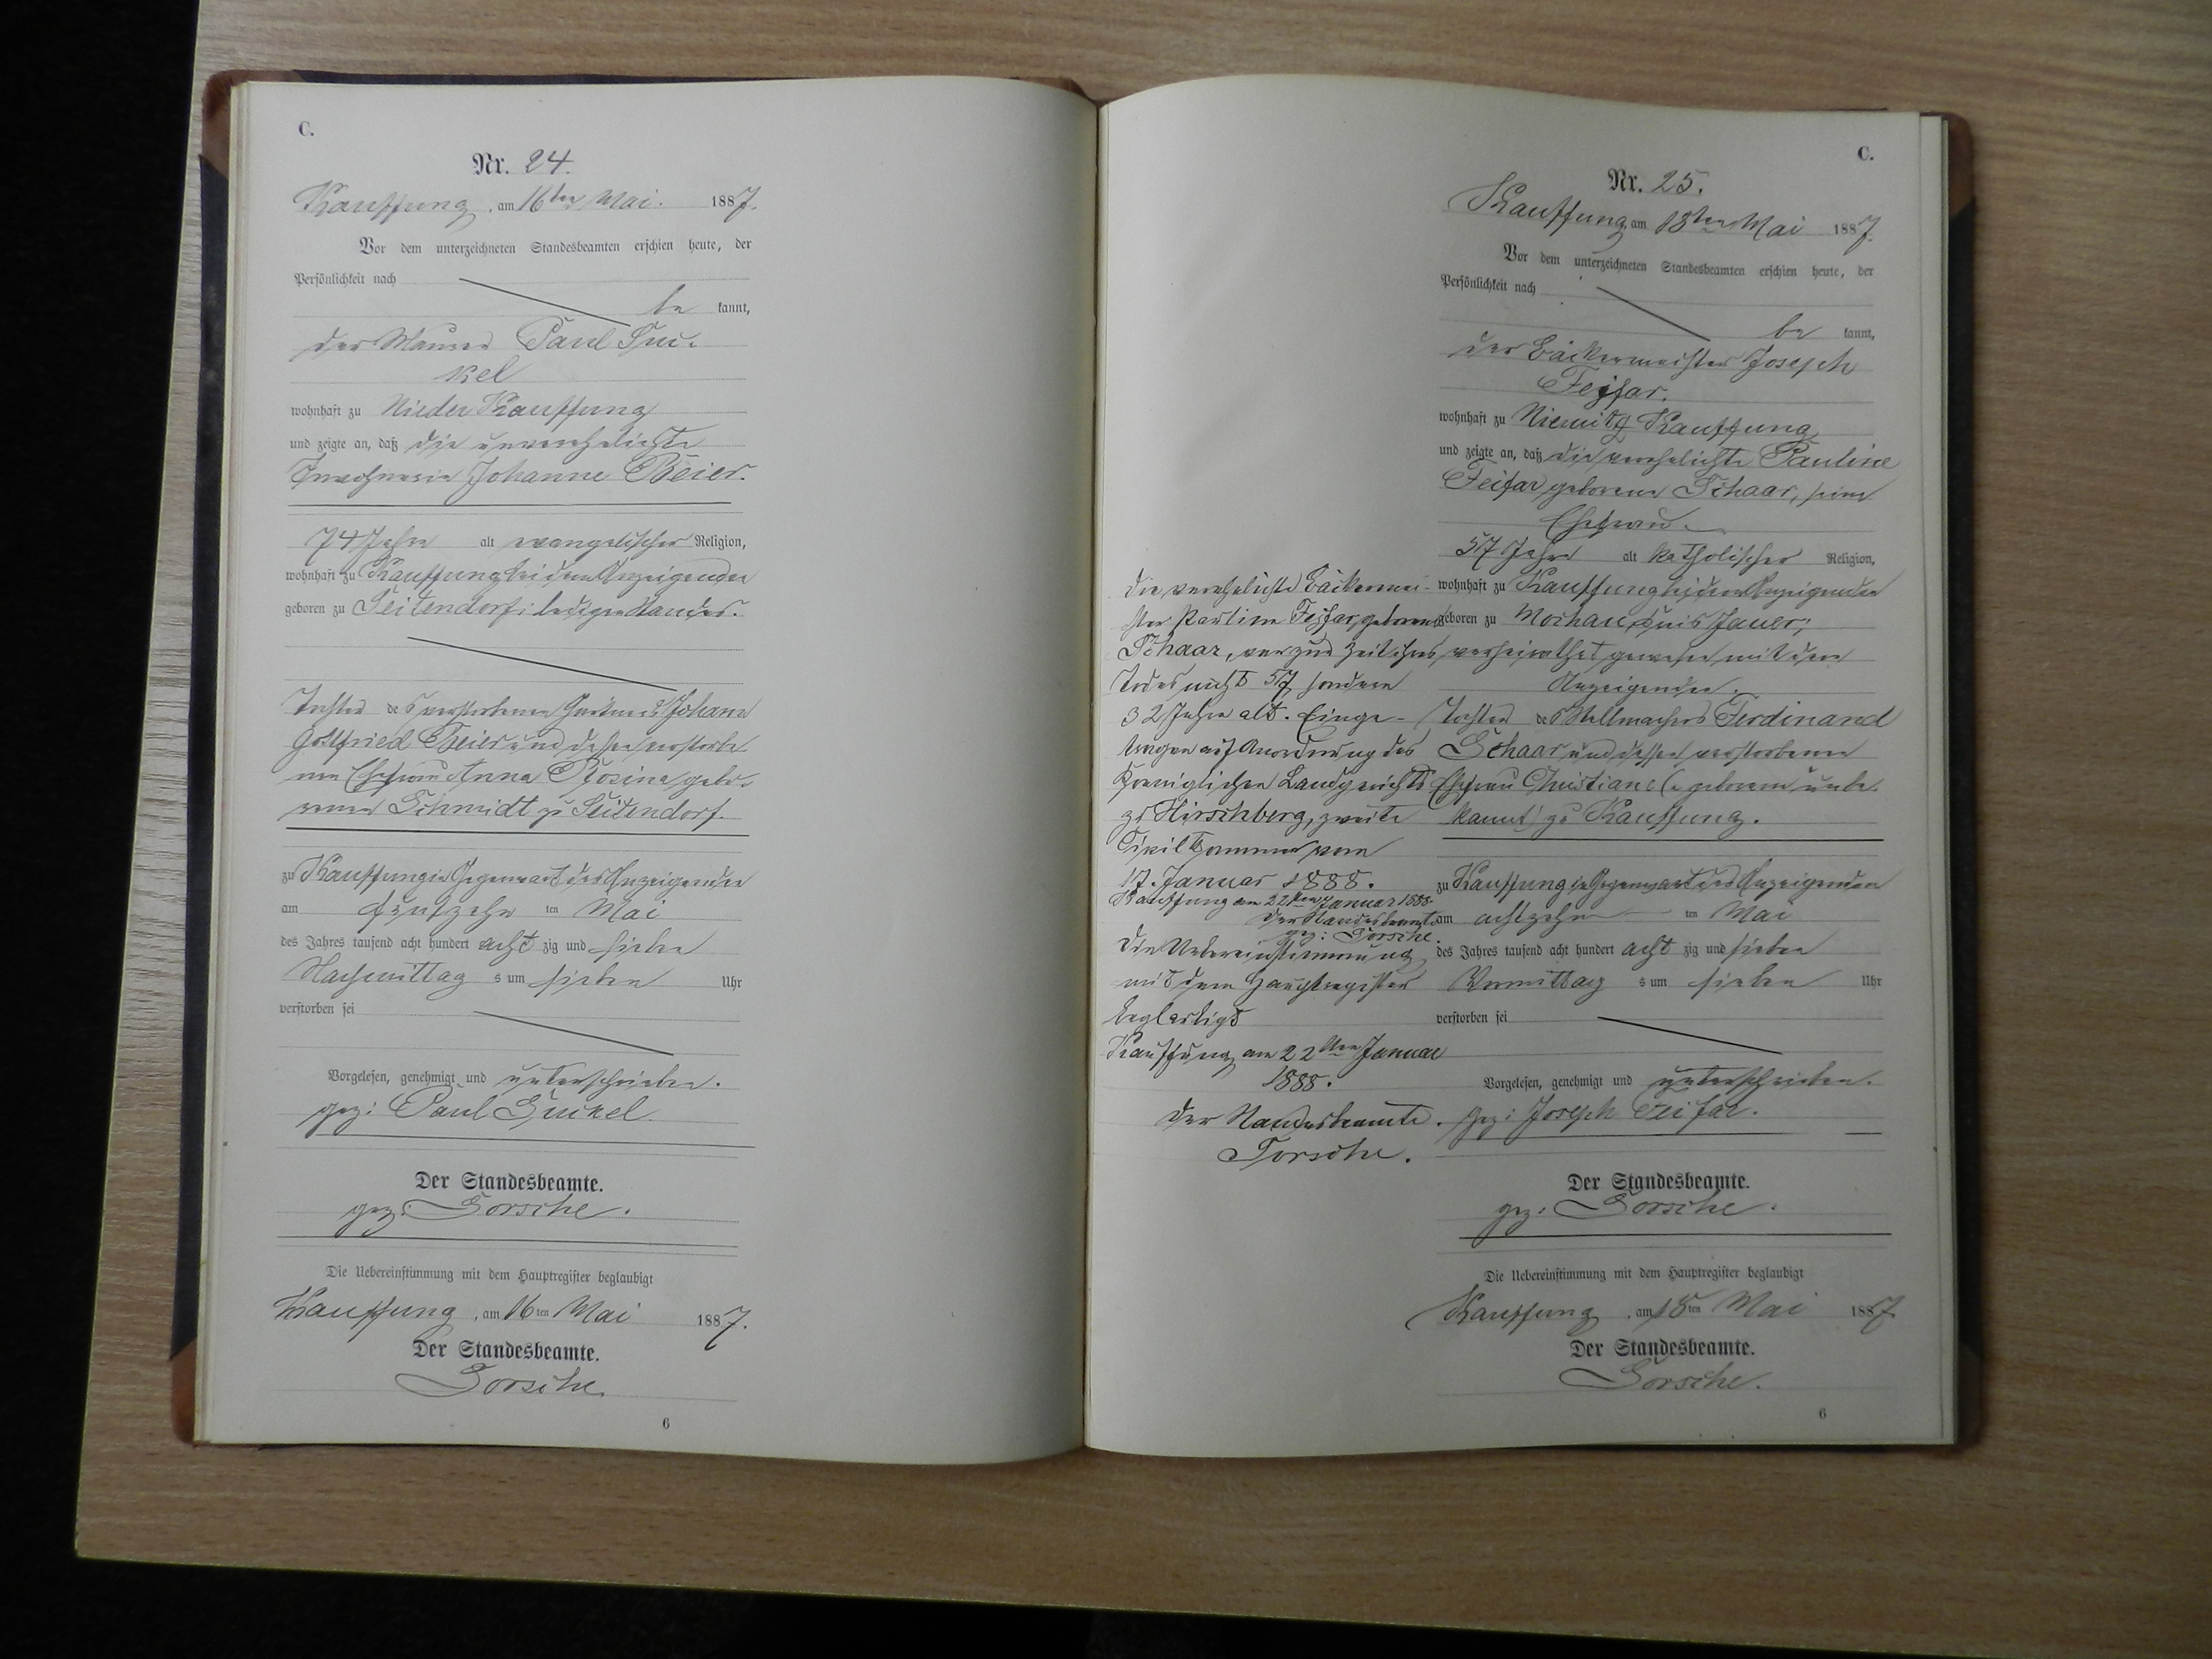 C.
Nr. 24.
Kauffung, am 16ten Mai. 1887.
Vor dem unterzeichneten Standesbeamten erschien heute, der
Persönlichkeit nach
be kannt,
der Maurer Paul Suc-
kel
wohnhaft zu Nieder Kauffung
und zeigte an, daß die unverehelichte
Inwohnerin Johanne Beier.
74 Jahre alt evangelischer Religion,
wohnhaft zu Kauffung bei dem Anzeigenden
geboren zu Seitendorf; ledigen Standes.
Tochter des verstorbenen Gärtners Johann
Gottfried Beier und dessen verstorbe-
nen Ehefrau Anna Rosina gebo-
renen Schmidt zu Seitendorf.
zu Kauffung in Gegenwart des Anzeigenden
am fünfzehn ten Mai
des Jahres tausend acht hundert acht zig und sieben
Nachmittag s um sieben Uhr
verstorben sei
Vorgelesen, genehmigt und unterschrieben.
gez: Paul Suckel
Der Standesbeamte.
gez: Torsche.
Die Uebereinstimmung mit dem Hauptregister beglaubigt
Kauffung, am 16ten Mai 1887.
Der Standesbeamte.
Torsche.
6
C.
Nr. 25.
Kauffung am 18ten Mai 1887.
Vor dem unterzeichneten Standesbeamten erschien heute, der
Persönlichkeit nach
be kannt,
der Bäckermeister Joseph
Feifar.
wohnhaft zu Niemitz Kauffung
und zeigte an, daß die verehelichte Pauline
Feifar geborene Schaar, seine
Ehefrau.
57 Jahre alt katholischer Religion,
wohnhaft zu Kauffung bei dem Anzeigenden
geboren zu Mochau Kreis Jauer;
verheirathet gewesen mit dem
Anzeigenden.
Tochter des Stellmachers Ferdinand
Schaar und dessen verstorbenen
Ehefrau Christiane (geborene unbe-
kannt) zu Kauffung.
zu Kauffung in Gegenwart des Anzeigenden
am achtzehn ten Mai
des Jahres tausend acht hundert acht zig und sieben
Vormittag s um sieben Uhr
verstorben sei
Vorgelesen, genehmigt und unterschrieben.
gez: Joseph Feifar.
Der Standesbeamte.
gez: Torsche.
Die Uebereinstimmung mit dem Hauptregister beglaubigt
Kauffung, am 18ten Mai 1887.
Der Standesbeamte.
Torsche.
6
Die verehelichte Bäckermei-
ster Pauline Feifar, geborene
Schaar, war zur Zeit ihres
Todes nicht 57 sondern
32 Jahre alt. Einge-
tragen auf Anordnung des
Königlichen Landgerichts
zu Hirschberg, zweite
Civil Kammer vom
17. Januar 1888.
Kauffung am 22ten Januar 1888.
Der Standesbeamte
gez: Torsche.
Die Uebereinstimmung
mit dem Hauptregister
beglaubigt
Kauffung am 22ten Januar
1888.
Der Standesbeamte.
Torsche.